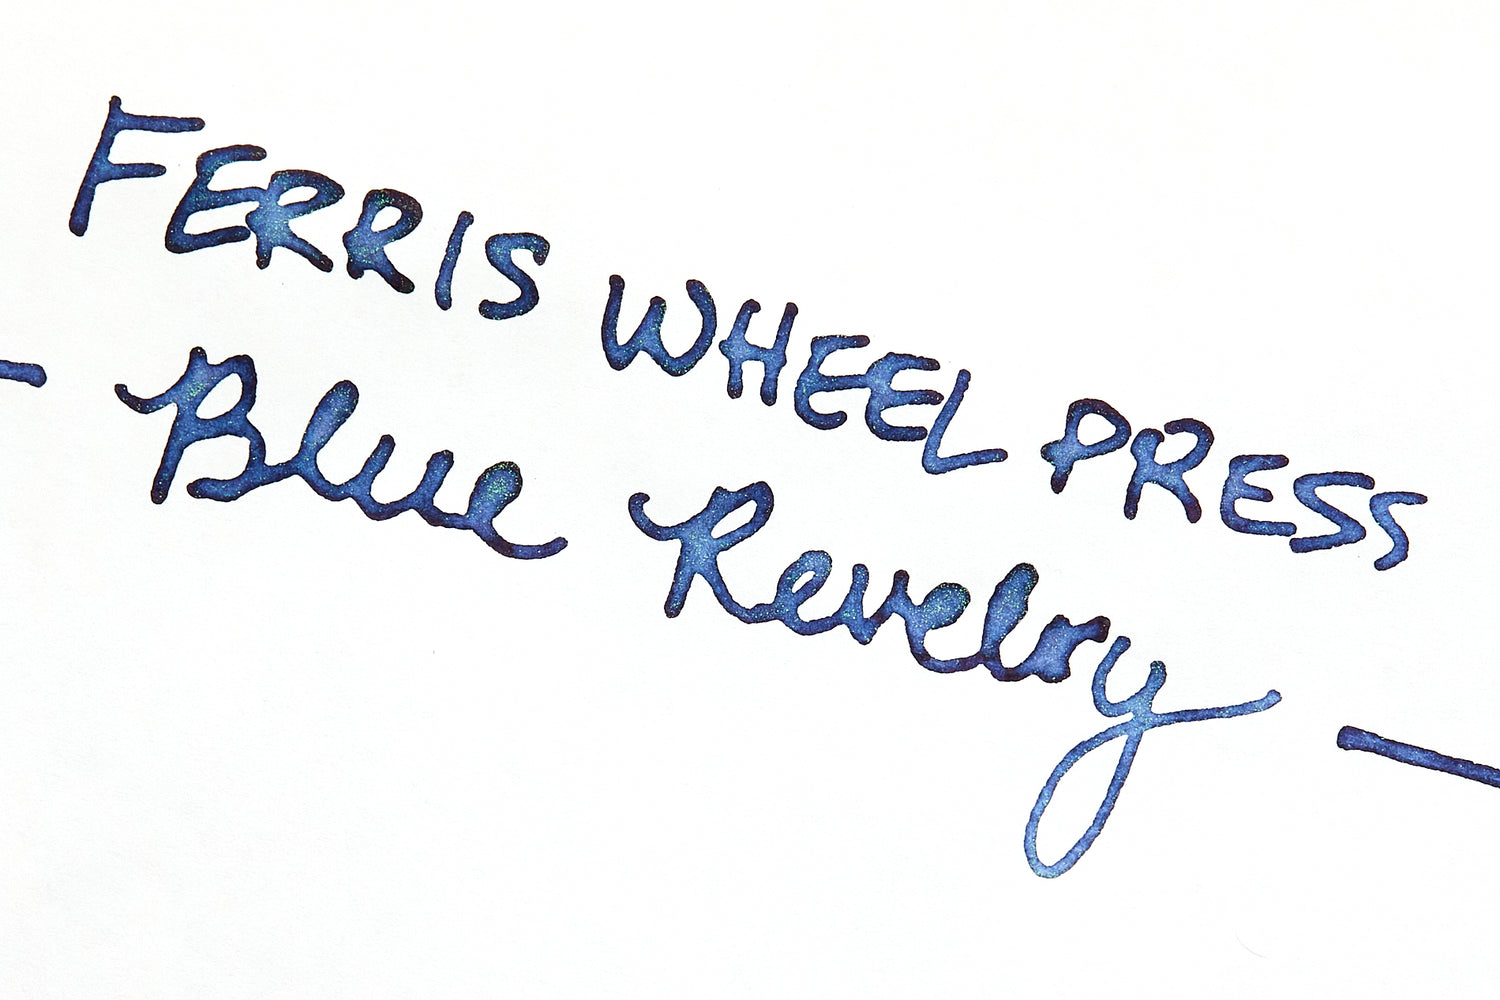 FERRIS WHEEL PRESS
Blue Revelry